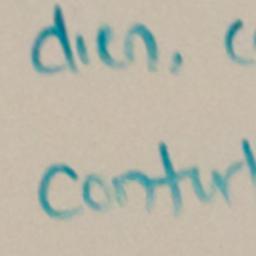 dien, c
contur